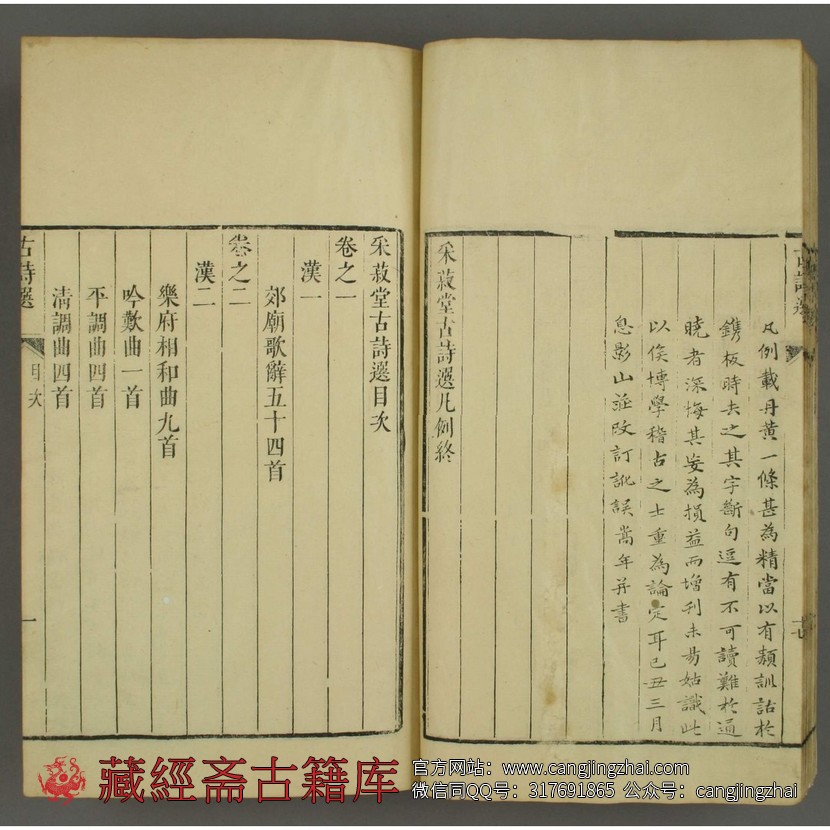 古詩選
十七
凡例載丹黃一條甚為精當以有類訓詁於
鐫板時去之其字斷句逗有不可讀難於通
曉者深悔其妄為損益而增刋未昜姑識此
以俟博學稽古之士重為論定耳己丑三月
息影山莊改訂訛誤嵩年并書
采菽堂古詩選凡例終
采菽堂古詩選目次
卷之一
漢一
郊廟歌辭五十四首
卷之二
漢二
樂府相和曲九首
吟歎曲一首
平調曲四首
清調曲四首
古詩選
目次
一
藏經斋古籍库
官方网站：www.cangjingzhai.com
微信同QQ号：317691865 公众号：cangjingzhai